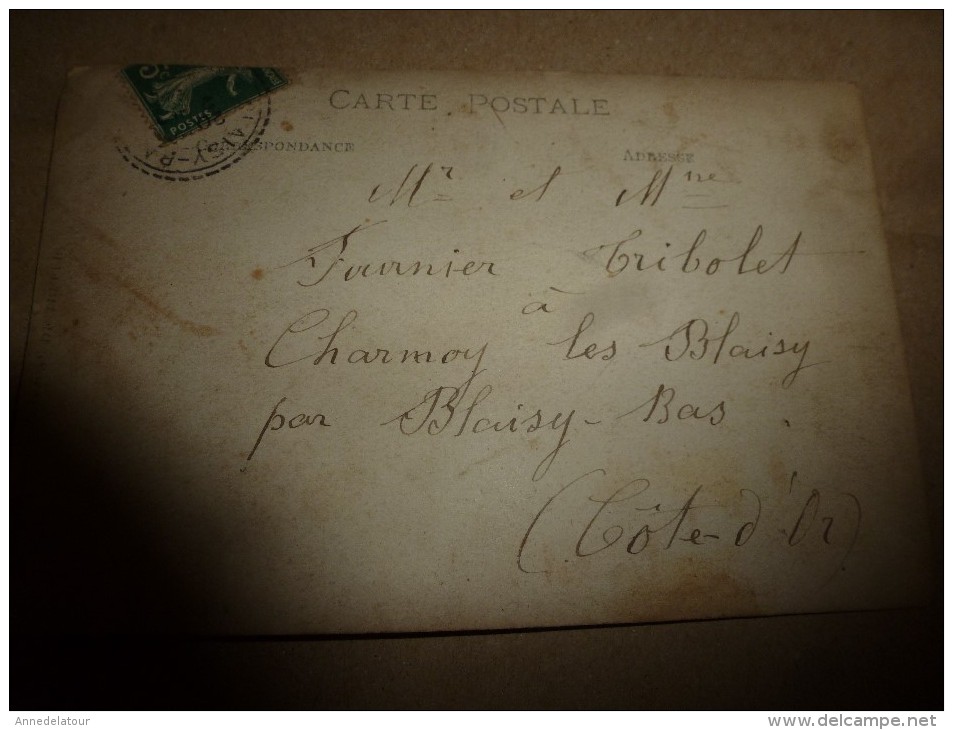 CARTE POSTALE
POSTES
CORRESPONDANCE
ADRESSE
Mr et Mme
Fournier Tribolet
à
Charmoy les Blaisy
par Blaisy-Bas.
(Côte-d'Or)
Annedelatour
www.delcampe.net